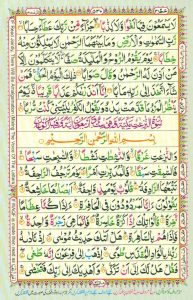 لَا يَسْمَعُونَ فِيْهَا لَغْوًا وَّلَا كِذّٰبًا جَزَآءً مِّنْ رَّبِّكَ عَطَآءً حِسَابًا
رَّبِّ السَّمٰوٰتِ وَالْاَرْضِ وَمَا بَيْنَهُمَا الرَّحْمٰنِ لَا يَمْلِكُوْنَ مِنْهُ
خِطَابًا يَوْمَ يَقُوْمُ الرُّوْحُ وَالْمَلٰٓئِكَةُ صَفًّا لَّا يَتَكَلَّمُوْنَ
اِلَّا مَنْ اَذِنَ لَهُ الرَّحْمٰنُ وَقَالَ صَوَابًا ذٰلِكَ الْيَوْمُ الْحَقُّ
فَمَنْ شَآءَ اتَّخَذَ اِلٰى رَبِّهٖ مَاٰبًا اِنَّآ اَنْذَرْنٰكُمْ عَذَابًا قَرِيْبًا
يَّوْمَ يَنْظُرُ الْمَرْءُ مَا قَدَّمَتْ يَدٰهُ وَيَقُوْلُ الْكٰفِرُ يٰلَيْتَنِيْ كُنْتُ تُرٰبًا
بِسْمِ اللّٰهِ الرَّحْمٰنِ الرَّحِيْمِ
وَالنّٰزِعٰتِ غَرْقًا وَّالنّٰشِطٰتِ نَشْطًا وَّالسّٰبِحٰتِ سَبْحًا
فَالسّٰبِقٰتِ سَبْقًا فَالْمُدَبِّرٰتِ اَمْرًا يَوْمَ تَرْجُفُ الرَّاجِفَةُ
تَتْبَعُهَا الرَّادِفَةُ قُلُوْبٌ يَّوْمَئِذٍ وَّاجِفَةٌ اَبْصَارُهَا خَاشِعَةٌ
يَقُوْلُوْنَ ءَاِنَّا لَمَرْدُوْدُوْنَ فِي الْحَافِرَةِ ءَاِذَا كُنَّا عِظَامًا
نَّخِرَةً قَالُوْا تِلْكَ اِذًا كَرَّةٌ خَاسِرَةٌ فَاِنَّمَا هِيَ زَجْرَةٌ وَّاحِدَةٌ
فَاِذَا هُمْ بِالسَّاهِرَةِ هَلْ اَتٰىكَ حَدِيْثُ مُوْسٰى اِذْ نَادٰىهُ
رَبُّهٗ بِالْوَادِ الْمُقَدَّسِ طُوًى اِذْهَبْ اِلٰى فِرْعَوْنَ اِنَّهٗ طَغٰى
فَقُلْ هَلْ لَّكَ اِلٰٓى اَنْ تَزَكّٰى وَاَهْدِيَكَ اِلٰى رَبِّكَ فَتَخْشٰى